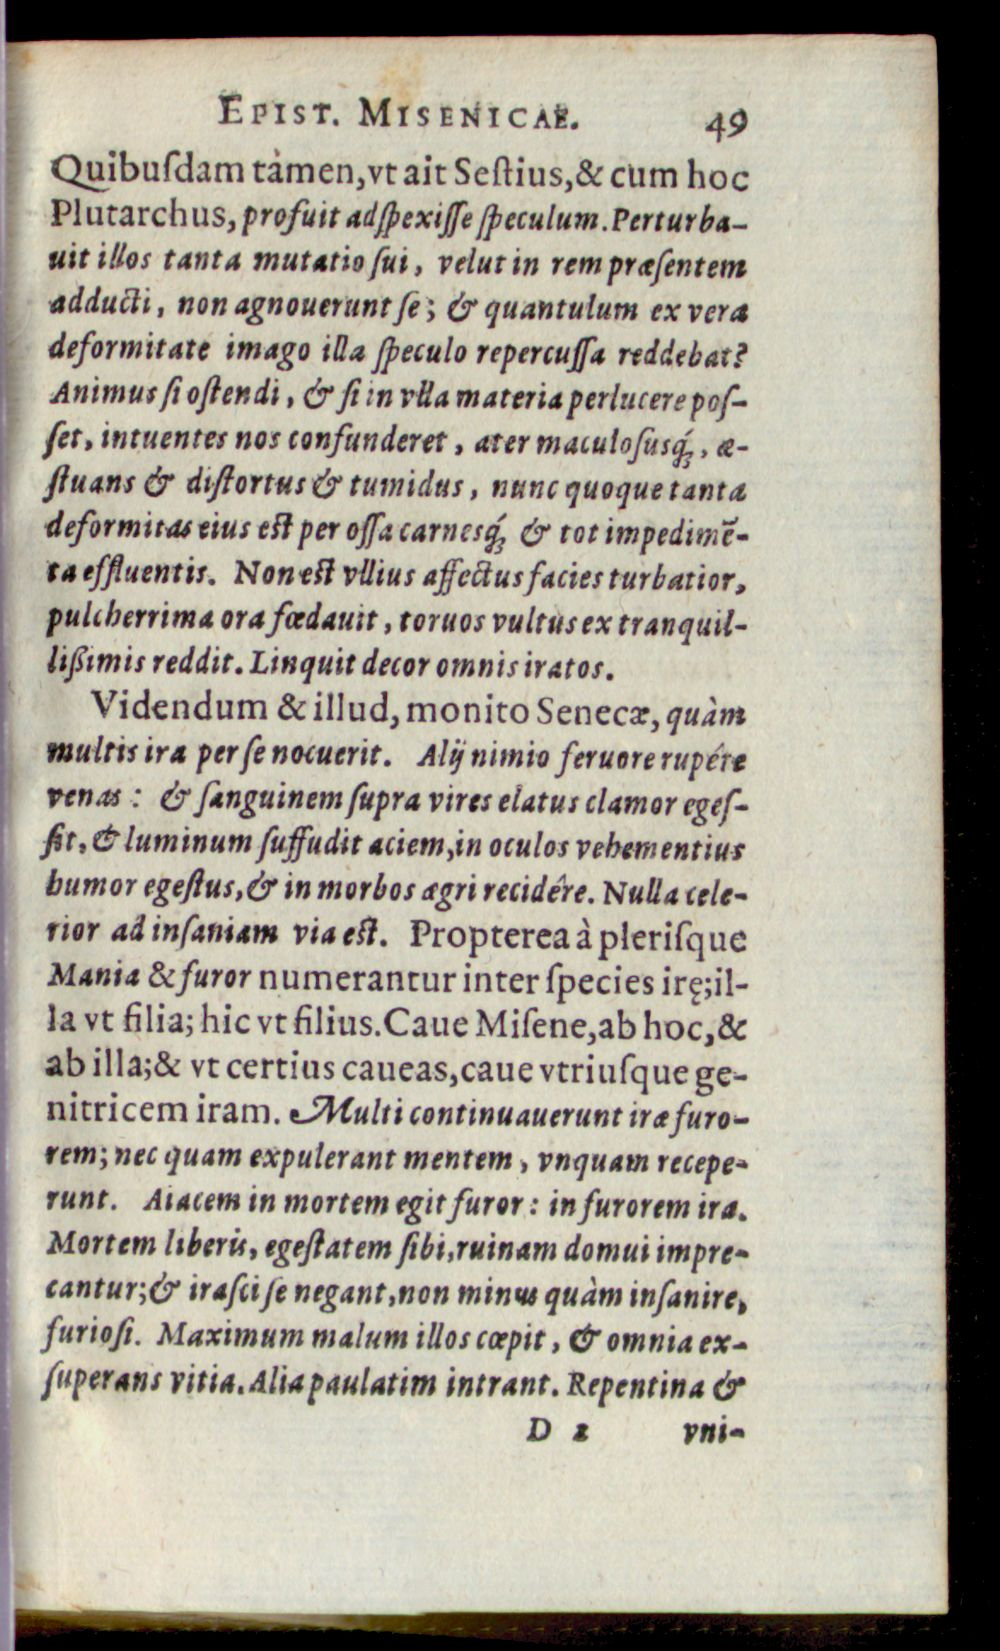 EPIST. MISENICAE. 49
Quibuſdam tàmen, vt ait Seſtius, & cum hoc
Plutarchus, profuit adſpexiſſe ſpeculum. Perturba-
uit illos tanta mutatio ſui, velut in rem præſentem
adducti, non agnouerunt ſe; & quantulum ex vera
deformitate imago illa ſpeculo repercuſſa reddebat?
Animus ſi oſtendi, & ſi in vlla materia perlucere poſ-
ſet, intuentes nos confunderet, ater maculoſusq́;, æ-
ſtuans & diſtortus & tumidus, nunc quoque tanta
deformitas eius eſt per oſſa carnesq́; & tot impedimẽ-
ta effluentis. Non eſt vllius affectus facies turbatior,
pulcherrima ora fœdauit, toruos vultus ex tranquil-
lißimis reddit. Linquit decor omnis iratos.
Videndum & illud, monito Senecæ, quàm
multis ira per ſe nocuerit. Alij nimio feruore rupére
venas: & ſanguinem ſupra vires elatus clamor egeſ-
ſit, & luminum ſuffudit aciem, in oculos vehementius
humor egeſtus, & in morbos ægri recidêre. Nulla cele-
rior ad inſaniam via eſt. Propterea à pleriſque
Mania & furor numerantur inter ſpecies irę; il-
la vt filia; hic vt filius. Caue Miſene, ab hoc, &
ab illa; & vt certius caueas, caue vtriuſque ge-
nitricem iram. Multi continuauerunt iræ furo-
rem; nec quam expulerant mentem, vnquam recepe-
runt. Aiacem in mortem egit furor: in furorem ira.
Mortem liberis, egeſtatem ſibi, ruinam domui impre-
cantur; & iraſci ſe negant, non minus quàm inſanire,
furioſi. Maximum malum illos cœpit, & omnia ex-
ſuperans vitia. Alia paulatim intrant. Repentina &
D 2 vni-